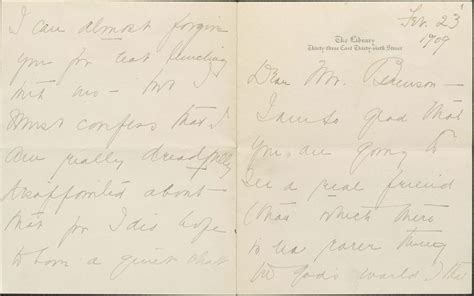 Feb. 23
1909
The Library
Thirty three East Thirty-sixth Street
Dear Mr.
I am so glad that
you are going to
see a real friend
(than which there
is no rarer thing
in God's world) that
I can almost forgive
you for not
with us — but I
must confess that I
am really dreadfully
disappointed about
that for I did hope
to have a quiet chat